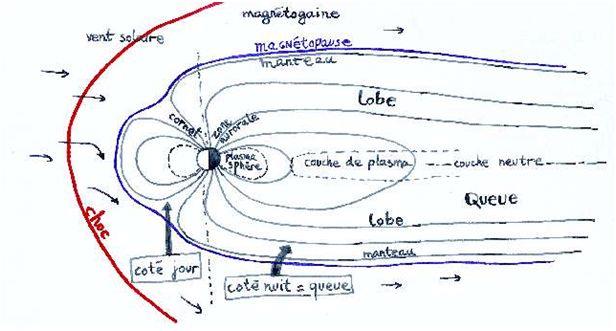 magnétogaine
vent solaire
magnétopause
manteau
Lobe
cornet
zone
aurorale
plasma
sphère
couche de plasma
couche neutre
Queue
choc
Lobe
manteau
coté jour
coté nuit = queue